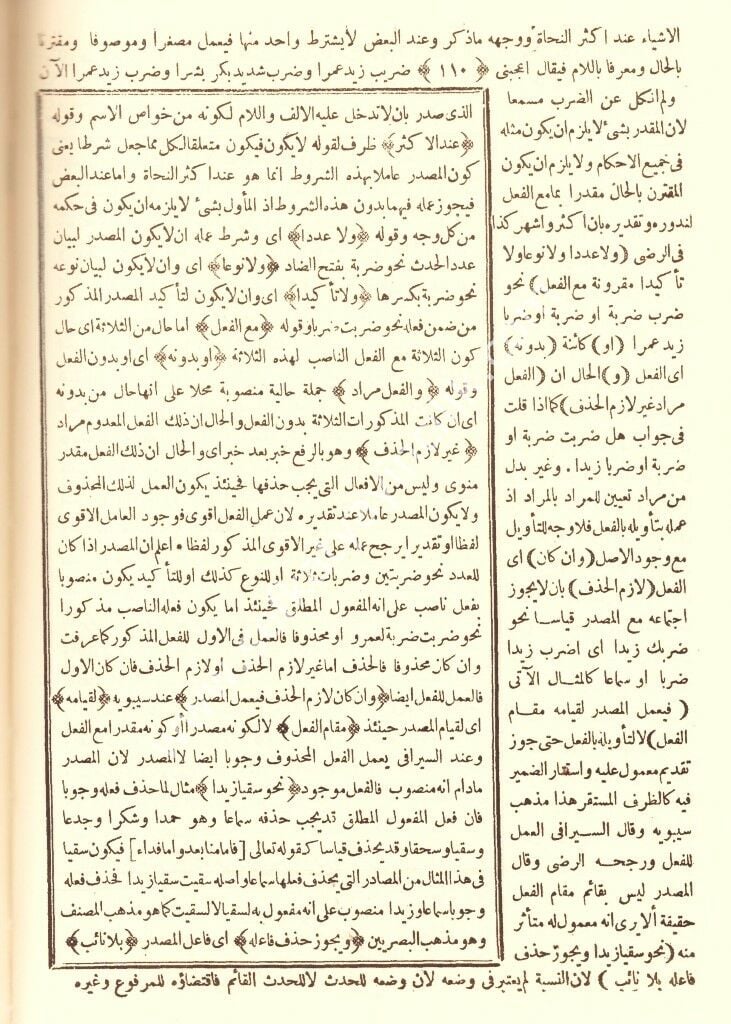 الاشياء عند اكثر النحاة ووجهه ماذكر وعند البعض لايشترط واحد منها فيعمل مصغرا وموصوفا ومقترنا
بالحال ومعرفا باللام فيقال اعجبنى ﴿ ١١٠ ﴾ ضريب زيد عمرا وضرب شديد بكر بشرا وضرب زيد عمرا الآن
ولم انكل عن الضرب مسمعا
لان المقدر بشئ لايلزم ان يكون مثله
فى جميع الاحكام ولا يلزم ان يكون
المقترن بالحال مقدرا بما مع الفعل
لندوره وتقديره بان اكثر واشهر كذا
فى الرضى (ولا عددا ولا نوعا ولا
تأكيدا مقرونة مع الفعل) نحو
ضرب ضربة او ضربة او ضربا
زيد عمرا (او) كائنة (بدونه)
اى الفعل (و) الحال ان (الفعل
مراد غير لازم الحذف) كما اذا قلت
فى جواب هل ضربت ضربة او
ضربة او ضربا زيدا . وغير بدل
من مراد تعيين للمراد بالمراد اذ
عمله بتأويله بالفعل فلا وجه للتأويل
مع وجود الاصل (وان كان) اى
الفعل (لازم الحذف) بان لايجوز
اجتماعه مع المصدر قياسا نحو
ضربك زيدا اى اضرب زيدا
ضربا او سماعا كالمثال الآتى
( فيعمل المصدر لقيامه مقام
الفعل) لا لتأويله بالفعل حتى جوز
تقديم معمول عليه واستتار الضمير
فيه كالظرف المستقر هذا مذهب
سيبويه وقال السيرافى العمل
للفعل ورجحه الرضى وقال
المصدر ليس بقائم مقام الفعل
حقيقة ألا يرى انه معمول له متأثر
منه (نحو سقيا زيدا ويجوز حذف
الذى صدر بان لاتدخل عليه الالف واللام لكونه من خواص الاسم وقوله
﴿عند الاكثر﴾ ظرف لقوله لايكون فيكون متعلقا لكل مما جعل شرطا يعنى
كون المصدر عاملا بهذه الشروط انما هو عند اكثر النحاة واما عند البعض
فيجوز عمله فيهما بدون هذه الشروط اذ المأول بشئ لايلزمه ان يكون فى حكمه
من كل وجه وقوله ﴿ولا عددا﴾ اى وشرط عمله ان لايكون المصدر لبيان
عدد الحدث نحو ضربة بفتح الضاد ﴿ولا نوعا﴾ اى وان لايكون لبيان نوعه
نحو ضربة بكسرها ﴿ولا تأكيدا﴾ اى وان لايكون لتأكيد المصدر المذكور
من ضمن فعله نحو ضربت ضربا وقوله ﴿مع الفعل﴾ اما حال من الثلاثة اى حال
كون الثلاثة مع الفعل الناصب لهذه الثلاثة ﴿او بدونه﴾ اى او بدون الفعل
وقوله ﴿ والفعل مراد ﴾ جملة حالية منصوبة محلا على انها حال من بدونه
اى ان كانت المذكورات الثلاثة بدون الفعل والحال ان ذلك الفعل المعدوم مراد
﴿ غير لازم الحذف ﴾ وهو بالرفع خبر بعد خبر اى والحال ان ذلك الفعل مقدر
منوى وليس من الافعال التى يجب حذفها فحينئذ يكون العمل لذلك المحذوف
ولا يكون المصدر عاملا عند تقديره لان عمل الفعل اقوى فوجود العامل الاقوى
لفظا او تقديرا يرجح عمله على غير الاقوى المذكور لفظا * اعلم ان المصدر اذا كان
للعدد نحو ضربتين وضربات ثلاثة او للنوع كذلك او للتأكيد يكون منصوبا
بفعل ناصب على انه المفعول المطلق فحينئذ اما يكون فعله الناصب مذكورا
نحو ضربت ضربة لعمرو او محذوفا فالعمل فى الاول للفعل المذكور كما عرفت
وان كان محذوفا فالحذف اما غير لازم الحذف او لازم الحذف فان كان الاول
فالعمل للفعل ايضا ﴿وان كان لازم الحذف فيعمل المصدر﴾ عند سيبويه ﴿لقيامه﴾
اى لقيام المصدر حينئذ ﴿ مقام الفعل ﴾ لا لكونه مصدرا أو كونه مقدرا مع الفعل
وعند السيرافى يعمل الفعل المحذوف وجوبا ايضا لا المصدر لان المصدر
مادام انه منصوب فالفعل موجود ﴿ نحو سقيا زيدا ﴾ مثال لما حذف فعله وجوبا
فان فعل المفعول المطلق قد يجب حذفه سماعا وهو حمدا وشكرا وجدعا
وسقيا وسحقا وقد يحذف قياسا كقوله تعالى [فاما منا بعد واما فداء] فيكون سقيا
فى هذا المثال من المصادر التى يحذف فعلها سماعا واصله سقيت سقيا زيدا فحذف فعله
وجوبا سماعا وزيدا منصوب على انه مفعول به لسقيا لا لسقيت كما هو مذهب المصنف
وهو مذهب البصريين ﴿ويجوز حذف فاعله﴾ اى فاعل المصدر ﴿بلا نائب﴾
فاعله بلا نائب ) لان النسبة لم يعتبر فى وضعه لان وضعه للحدث لا للحدث القائم فاقتضاؤه للمرفوع وغيره